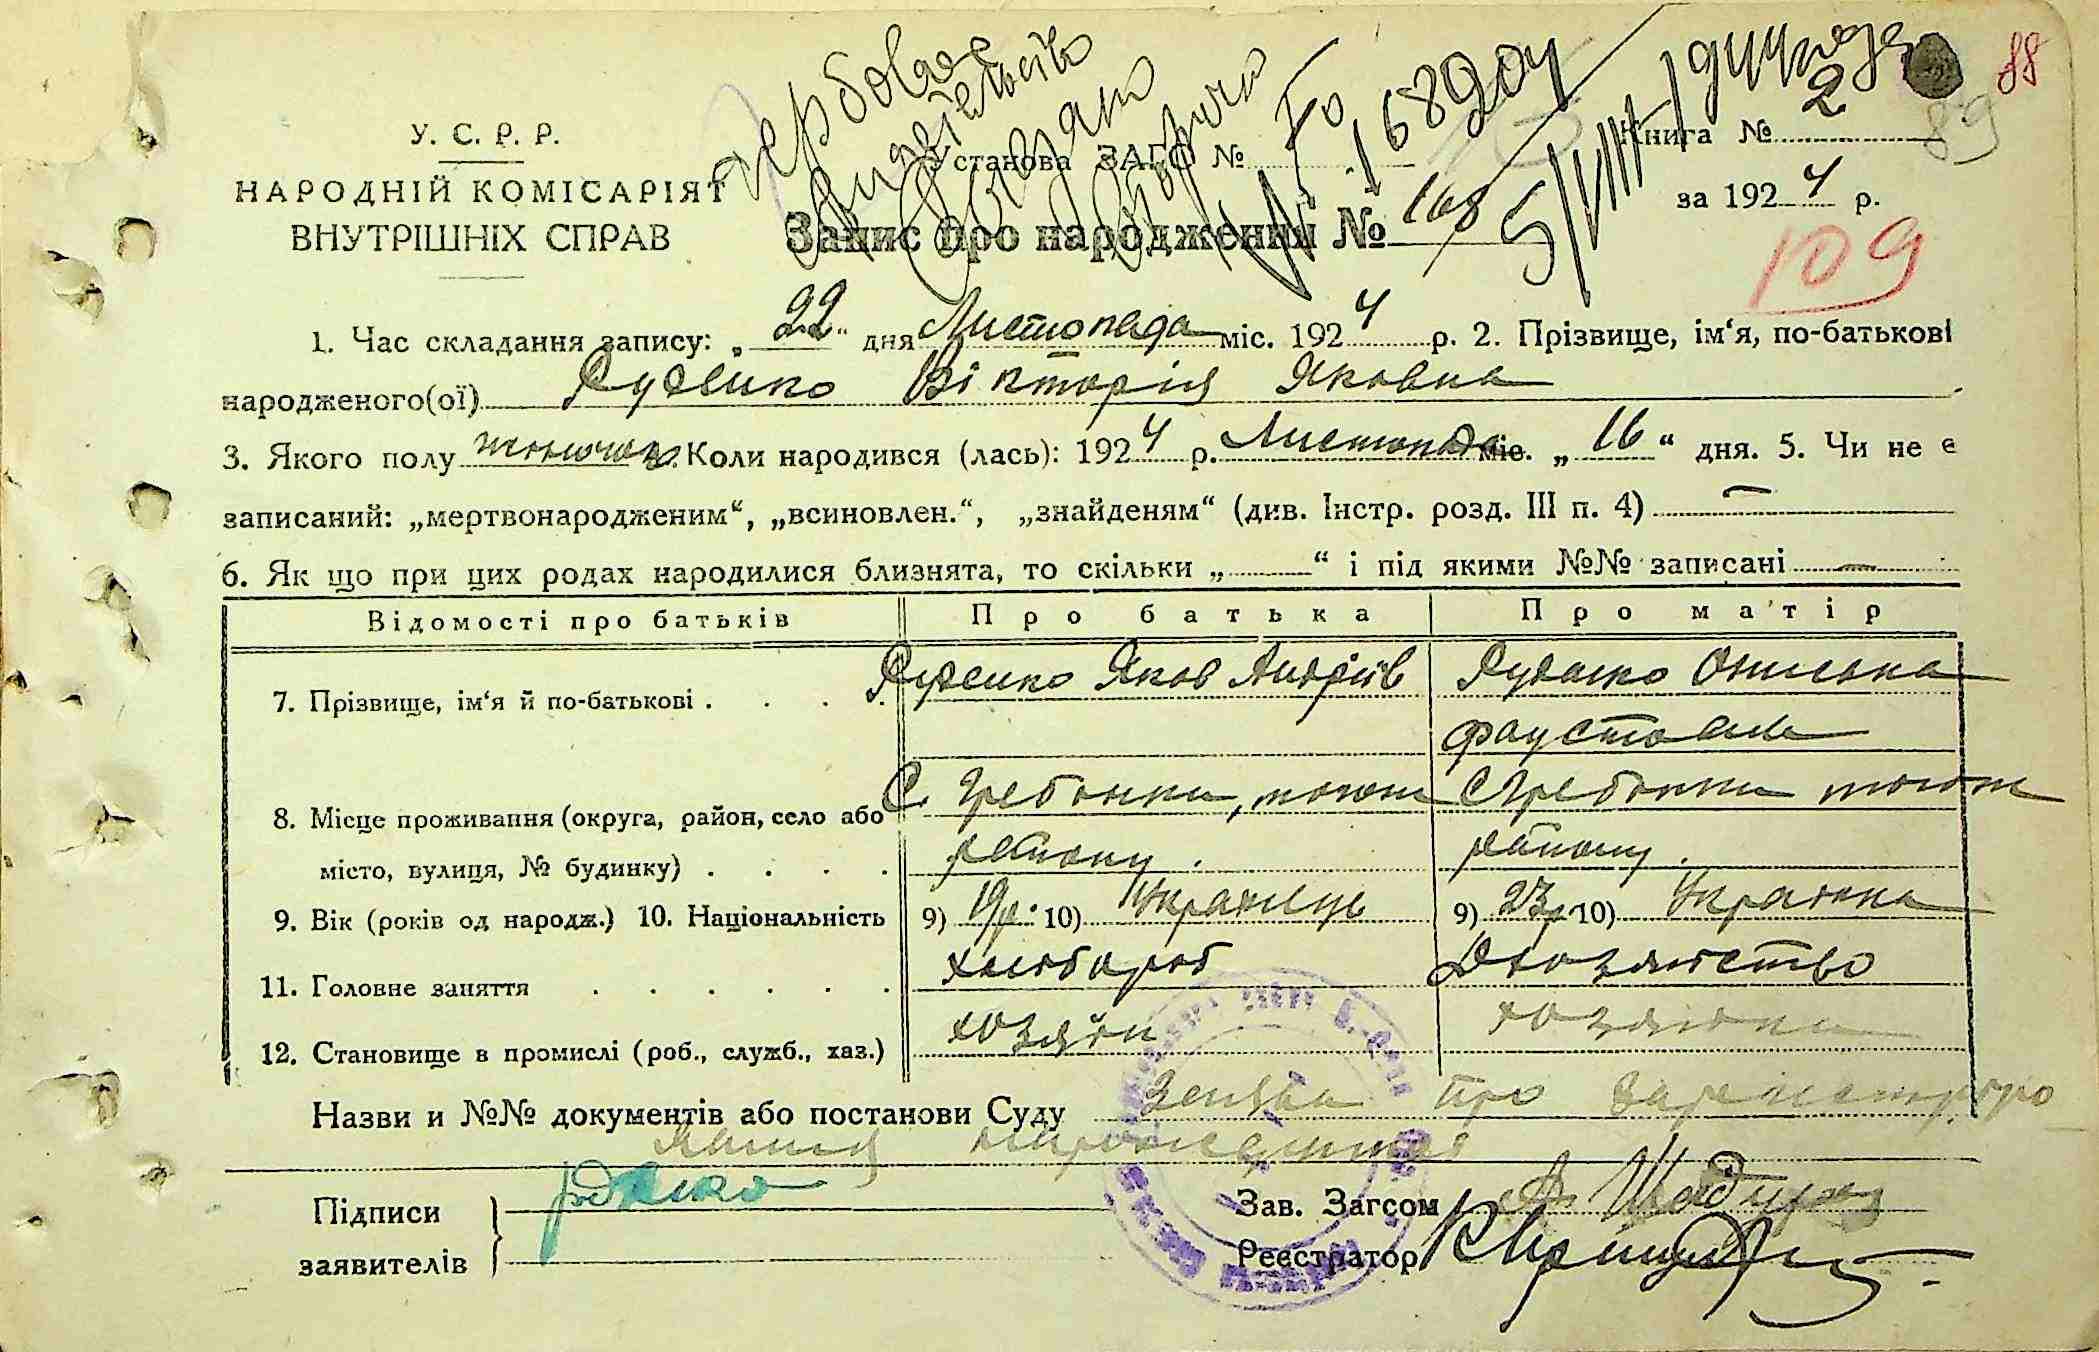 88
89
У. С. Р. Р.
НАРОДНІЙ КОМІСАРІЯТ
ВНУТРІШНІХ СПРАВ
Гербовое
свидетельство
выдано
повторно
№ 168904
5/VIII-1944 года
Установа ЗАГС №
Книга № 2
за 1924 р.
Запис про народження № 168
109
1. Час складання запису: „22“ дня Листопада міс. 1924 р. 2. Прізвище, ім‘я, по-батькові
народженого(ої) Вікторія Яковна
3. Якого полу жіночого 4. Коли народився (лась): 1924 р. Листопада міс. „16“ дня. 5. Чи не є
записаний: „мертвонародженим“, „всиновлен.“, „знайденям“ (див. Інстр. розд. III п. 4) —
6. Як що при цих родах народилися близнята, то скільки „—“ і під якими №№ записані —
Відомості про батьків Про батька Про матір
7. Прізвище, ім‘я й по-батькові . . . . Яков Андріїв
8. Місце проживання (округа, район, село або С. Гребінки, того ж С. Гребінки того ж
місто, вулиця, № будинку) . . . . району. району.
9. Вік (років од народж.) 10. Національність 9) 19р. 10) Українець 9) 23р. 10) Українка
11. Головне заняття . . . . . . хлібороб Д хозяйство
12. Становище в промислі (роб., служб., хаз.) хозяїн хозяйка
Назви и №№ документів або постанови Суду Заява про зареєстро
вання народження
Підписи
заявителів
Зав. Загсом
Реєстратор